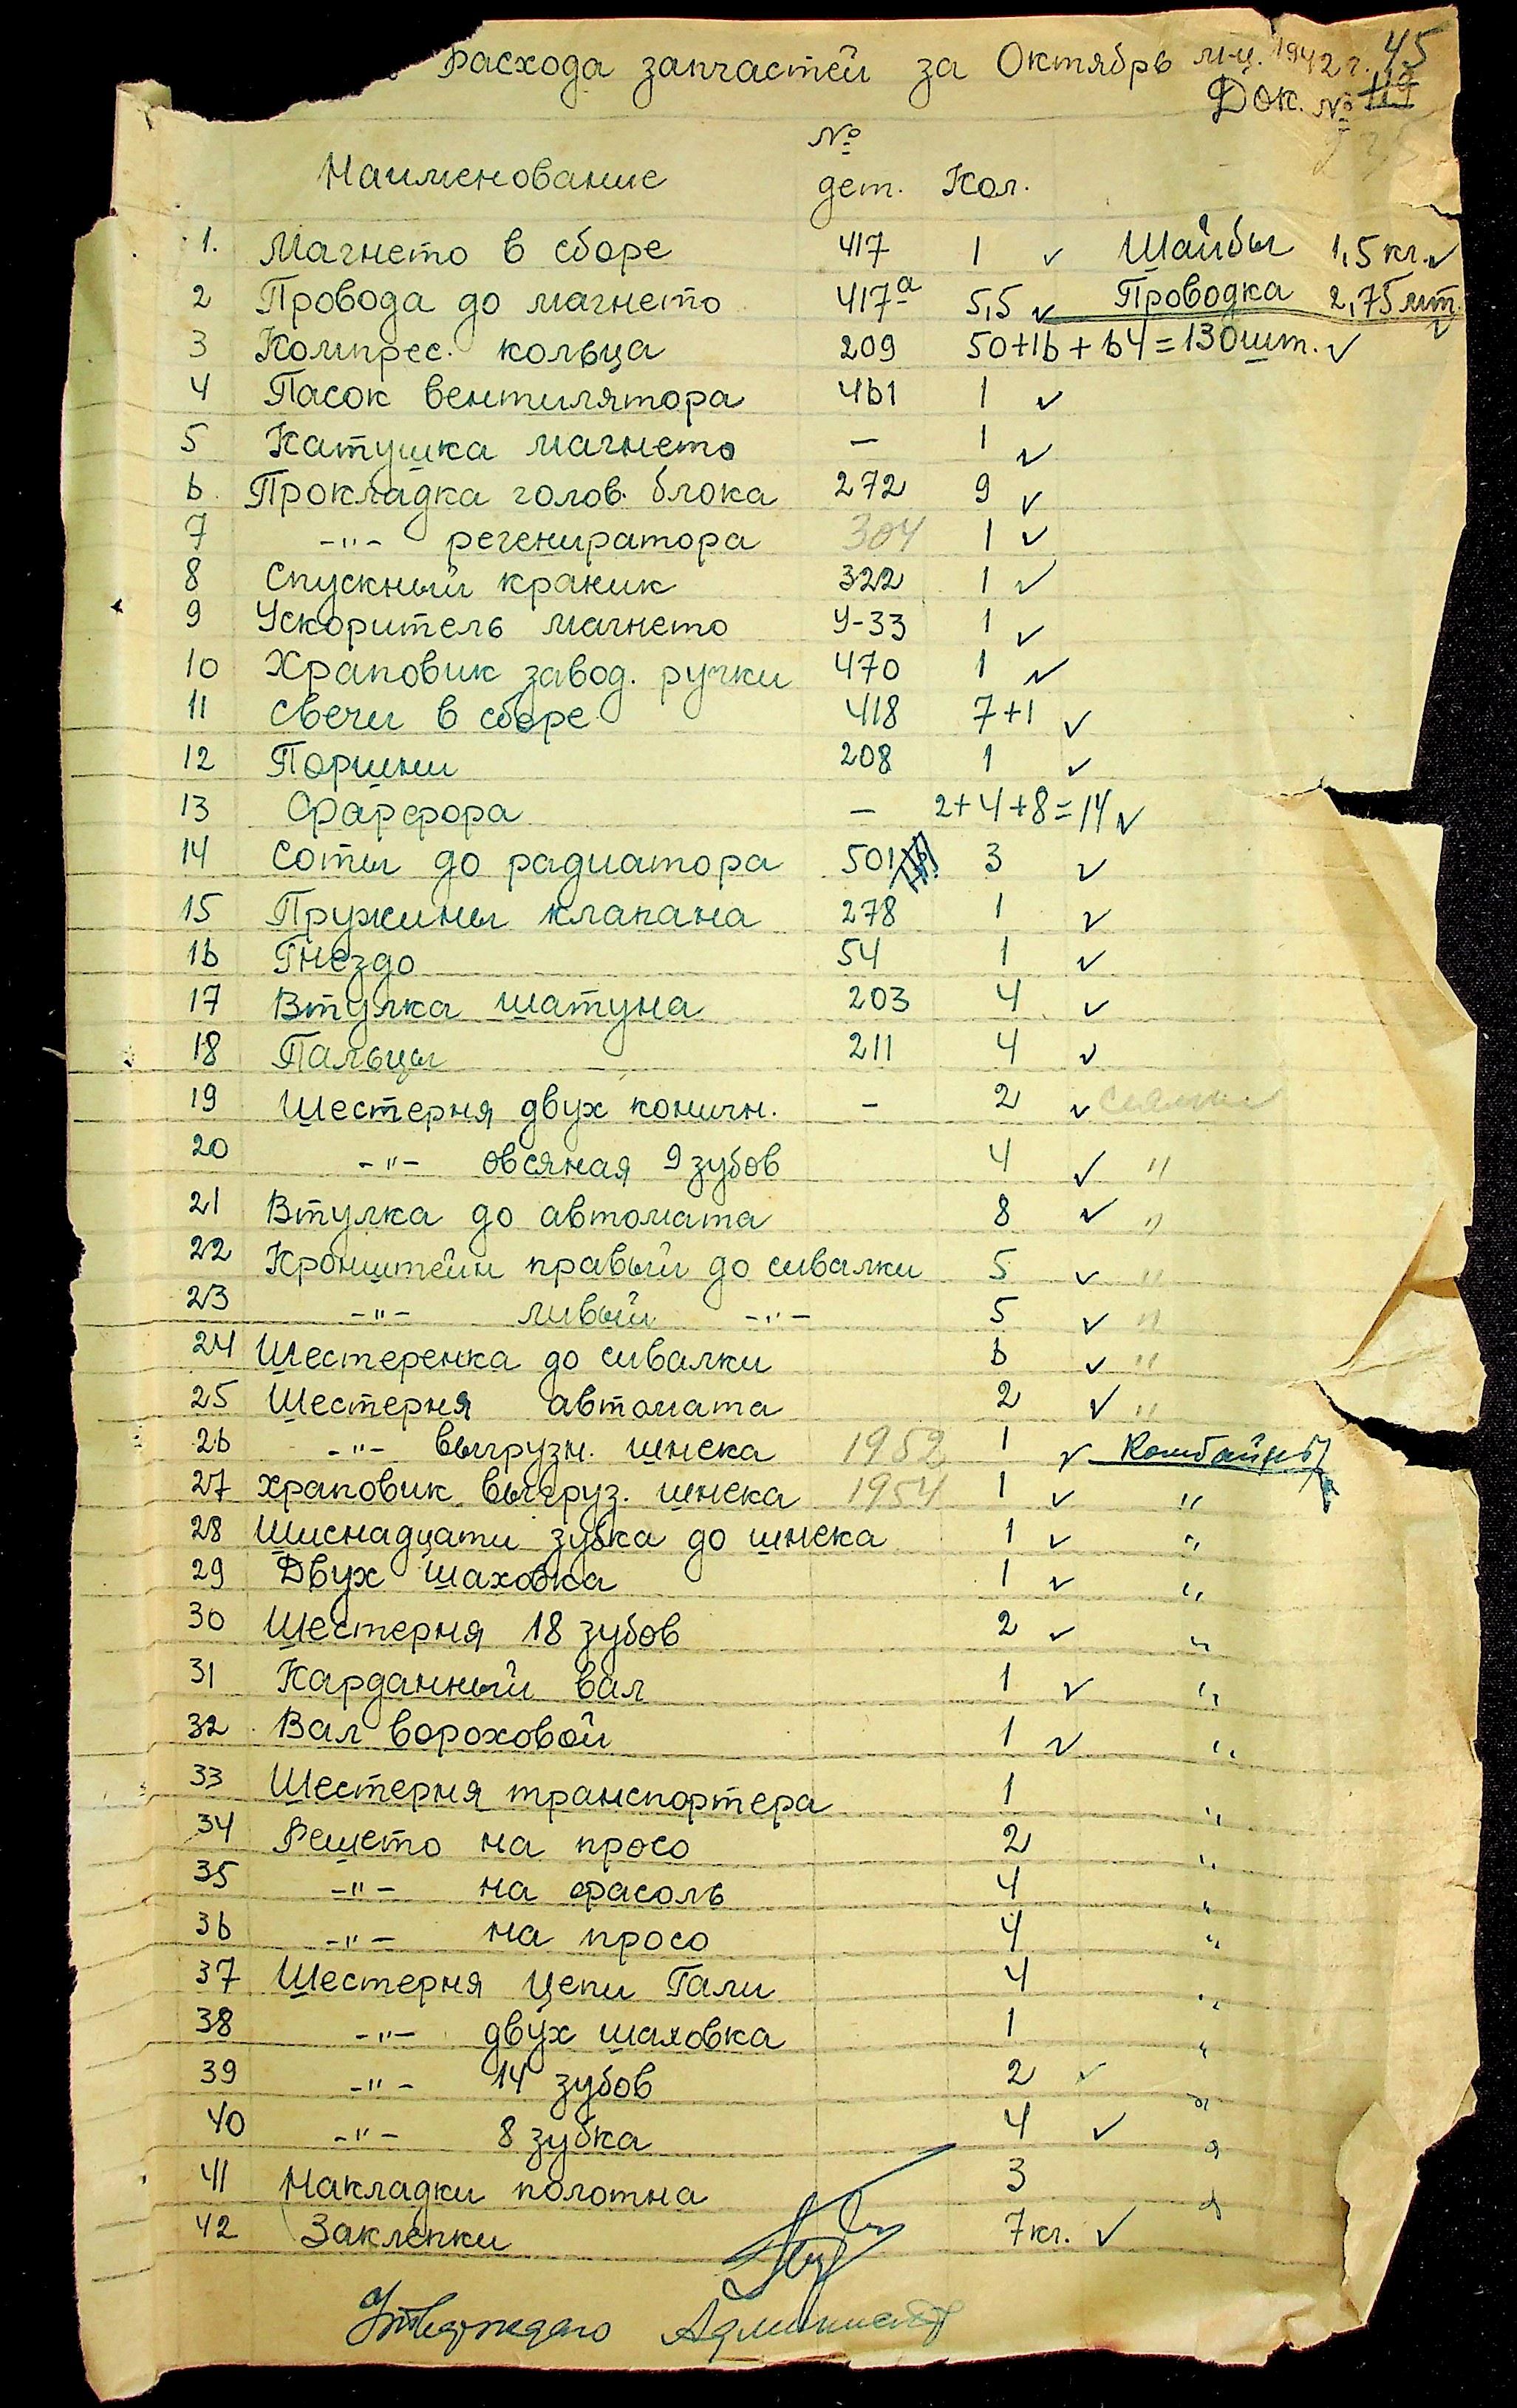 Расхода запчастей за Октябрь м-ц. 1942 г. 45
Док. № 119
Наименование № дет. Кол.
1. Магнето в сборе 417 1 ✓ Шайбы 1,5 кг. ✓
2 Провода до магнето 417а 5,5 ✓ Проводка 2,75 мт. ✓
3 Компрес. кольца 209 50+16+64=130 шт. ✓
4 Пасок вентилятора 461 1 ✓
5 Катушка магнето — 1 ✓
6. Прокладка голов. блока 272 9 ✓
7 -"- регениратора 304 1 ✓
8 Спускный краник 322 1 ✓
9 Ускоритель магнето У-33 1 ✓
10 Храповик завод. ручки 470 1 ✓
11 Свечи в сборе 418 7+1 ✓
12 Поршни 208 1 ✓
13 Фарфора — 2+4+8=14 ✓
14 Соты до радиатора 501 3 ✓
15 Пружины клапана 278 1 ✓
16 Гнездо 54 1 ✓
17 Втулка шатуна 203 4 ✓
18 Пальцы 211 4 ✓
19 Шестерня двух коничн. — 2 ✓
20 -"- овсяная 9 зубов 4 ✓ "
21 Втулка до автомата 8 ✓ "
22 Кронштейн правый до сивалки 5 ✓ "
23 -"- ливый -"- 5 ✓ "
24 Шестеренка до сивалки 6 ✓ "
25 Шестерня автомата 2 ✓ "
26 -"- выгрузн. шнека 1952 1 ✓ Комбайны
27 Храповик выгруз. шнека 1954 1 ✓ "
28 Шиснадцати зубка до шнека 1 ✓ "
29 Двух шаховка 1 ✓ "
30 Шестерня 18 зубов 2 ✓ "
31 Карданный вал 1 ✓ "
32 Вал вороховой 1 ✓ "
33 Шестерня транспортера 1 "
34 Решето на просо 2 "
35 -"- на фасоль 4 "
36 -"- на просо 4 "
37 Шестерня цепи Гали 4 "
38 -"- двух шаховка 1 "
39 -"- 14 зубов 2 ✓ "
40 -"- 8 зубка 4 ✓ "
41 Накладки полотна 3 "
42 Заклепки 7 кг. ✓
Утверждаю